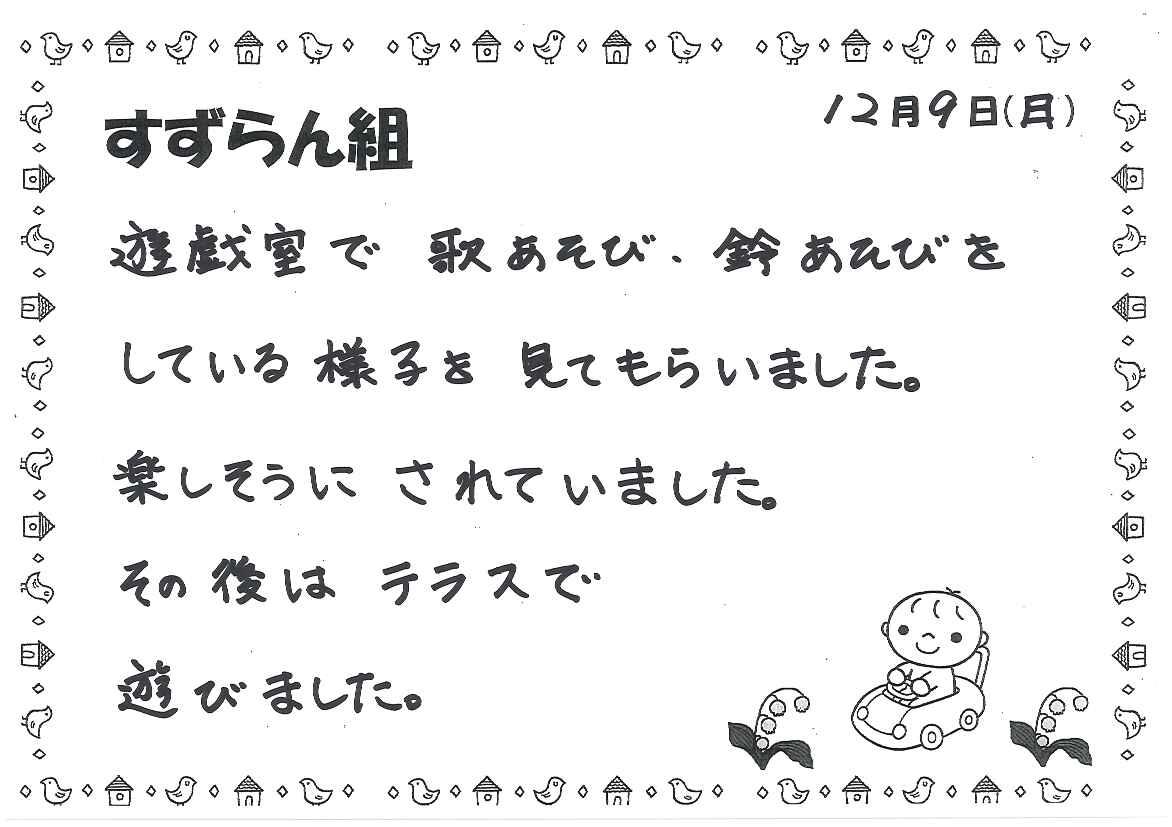 すずらん組
12月9日(月)
遊戯室で 歌あそび、鈴あそびを
している様子を 見てもらいました。
楽しそうに されていました。
その後は テラスで
遊びました。